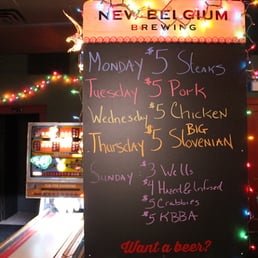 NEW BELGIUM
BREWING
MONDAY $5 Steaks
Tuesday $5 Pork
Wednesday $5 Chicken
Thursday $5 BIG Slovenian
Sunday: $3 Wells
$4 Hazed & Infused
$5 Crabbies
$5 KBBA
Want a beer?